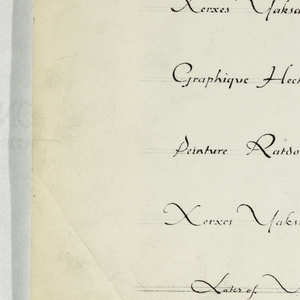 Xerxes Yaksa
Graphique Hect
Peinture Ratdo
Xerxes Yaks
Later of